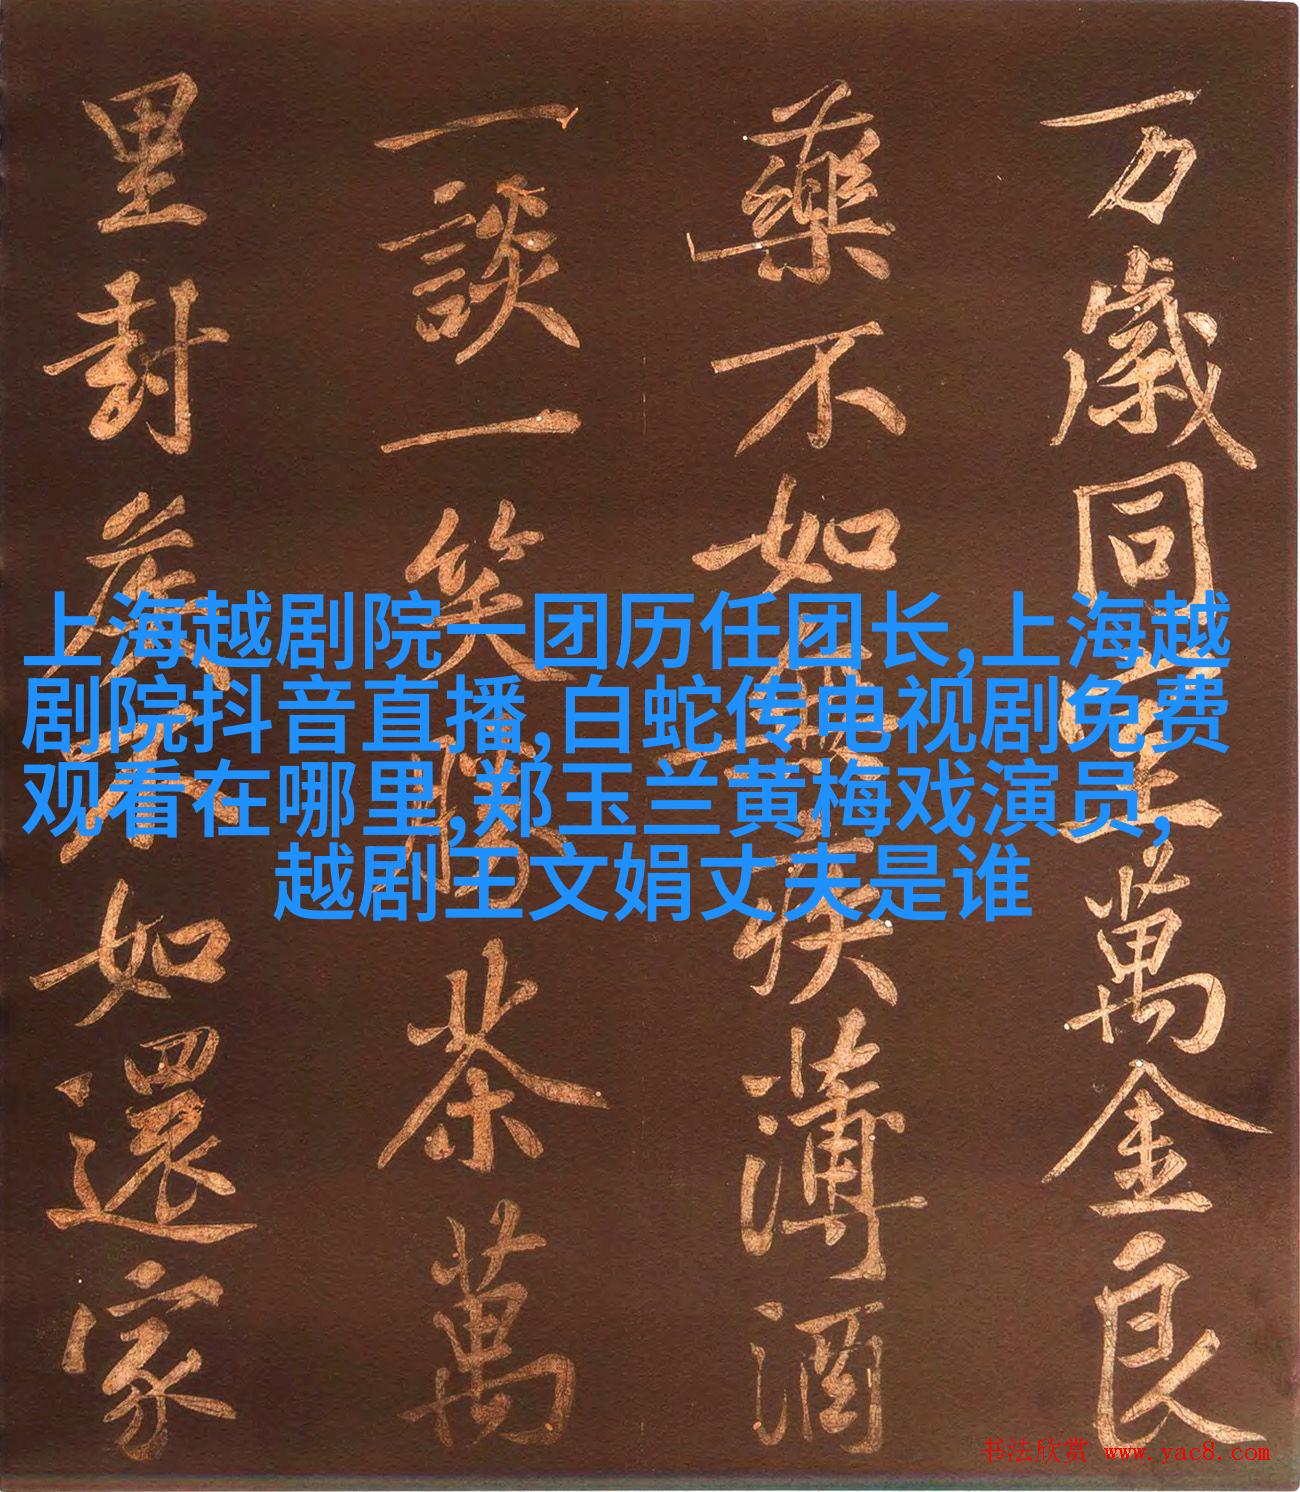 万歲同萬金良
藥不如無疾薄酒
一談一笑勝茶萬
里封矦不如還家
上海越剧院一团历任团长,上海越
剧院抖音直播,白蛇传电视剧免费
观看在哪里,郑玉兰黄梅戏演员,
越剧王文娟丈夫是谁
书法欣赏 www.yac8.com